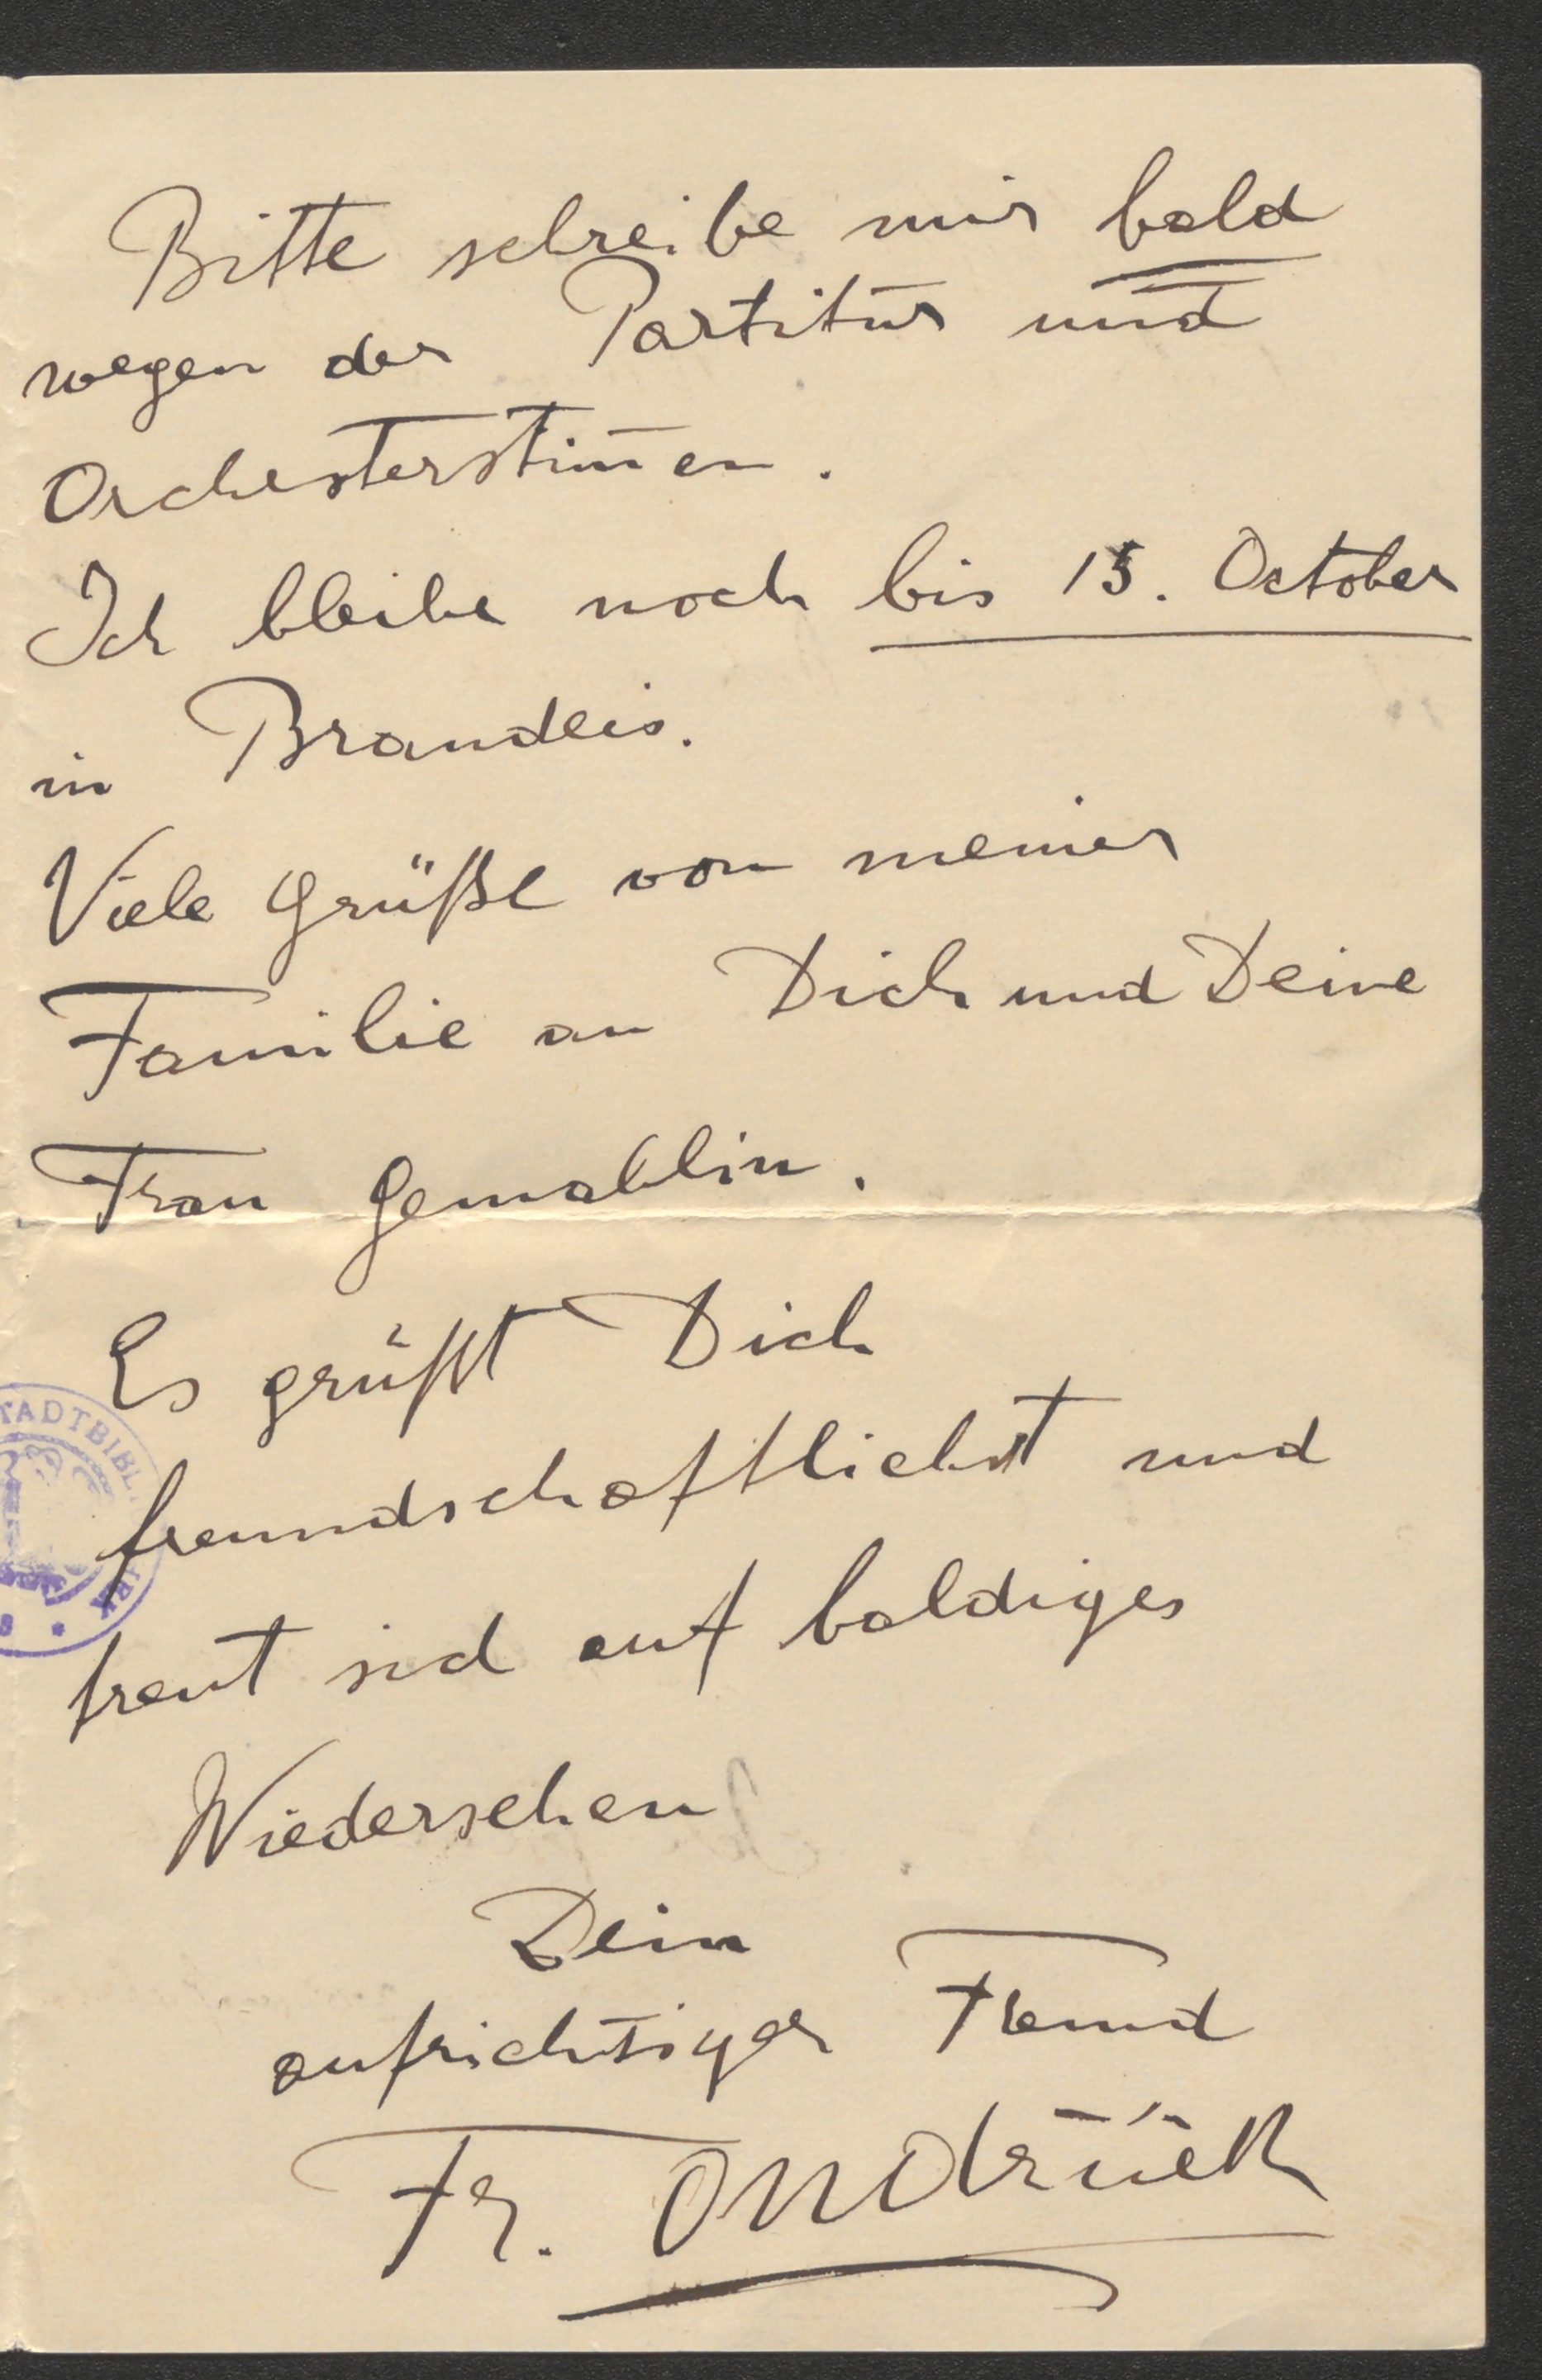 Bitte schreibe mir bald
wegen der Partitur und
Orchesterstim̄en.
Ich bleibe noch bis 15. October
in Brandeis.
Viele Grüße von meiner
Familie an Dich und Deine
Frau Gemahlin.
Es grüßt Dich
freundschaftlichst und
freut sich auf baldiges
Wiedersehen
Dein
aufrichtiger Freund
Fr. Ondříček
TADTBIBL